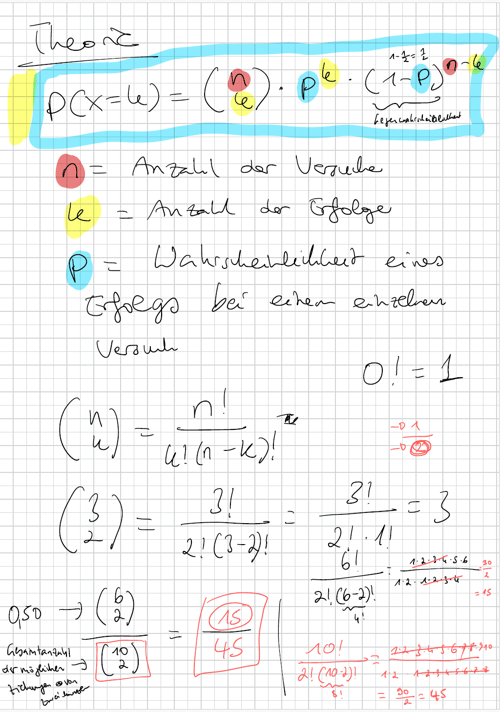 Theorie
1-½=½
P(X=k) = (n k) · p^k · (1-p)^n-k
Gegenwahrscheinlichkeit
n = Anzahl der Versuche
k = Anzahl der Erfolge
p = Wahrscheinlichkeit eines
Erfolgs bei einem einzelnen
Versuch
0! = 1
(n k) = n! / k!(n-k)!
→ 1
→ 2
(3 2) = 3! / 2!(3-2)! = 3! / 2!·1! = 3
6! / 2!(6-2)! = 1·2·3·4·5·6 / 1·2·1·2·3·4 = 30/2
4!
= 15
0,50 → (6 2) / (10 2) = 15 / 45
Gesamtanzahl
der möglichen →
Ziehungen
10! / 2!(10-2)! = 1·2·3·4·5·6·7·8·9·10 / 1·2·1·2·3·4·5·6·7·8
8!
= 90/2 = 45